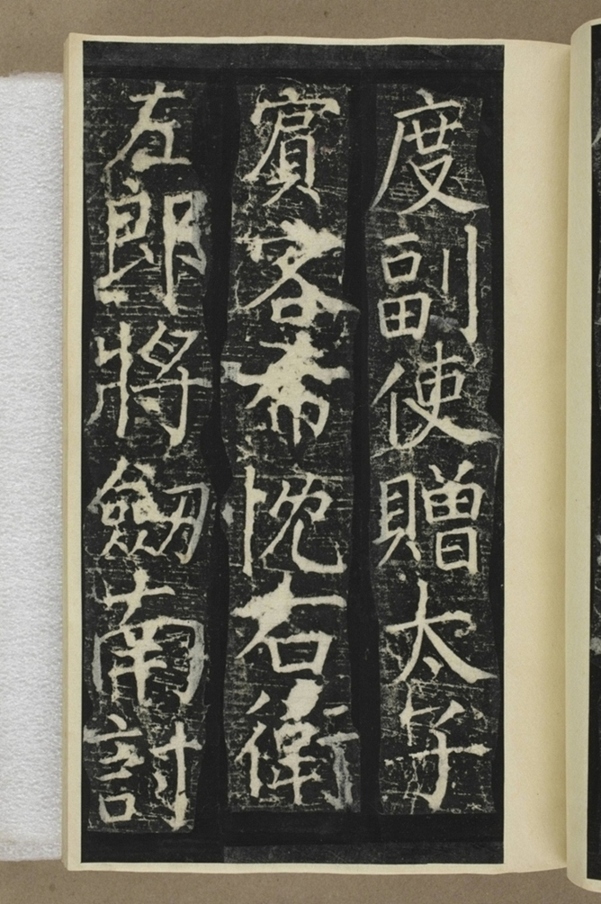 度副使贈太子
賓客希忱右衛
左郎將劒南討